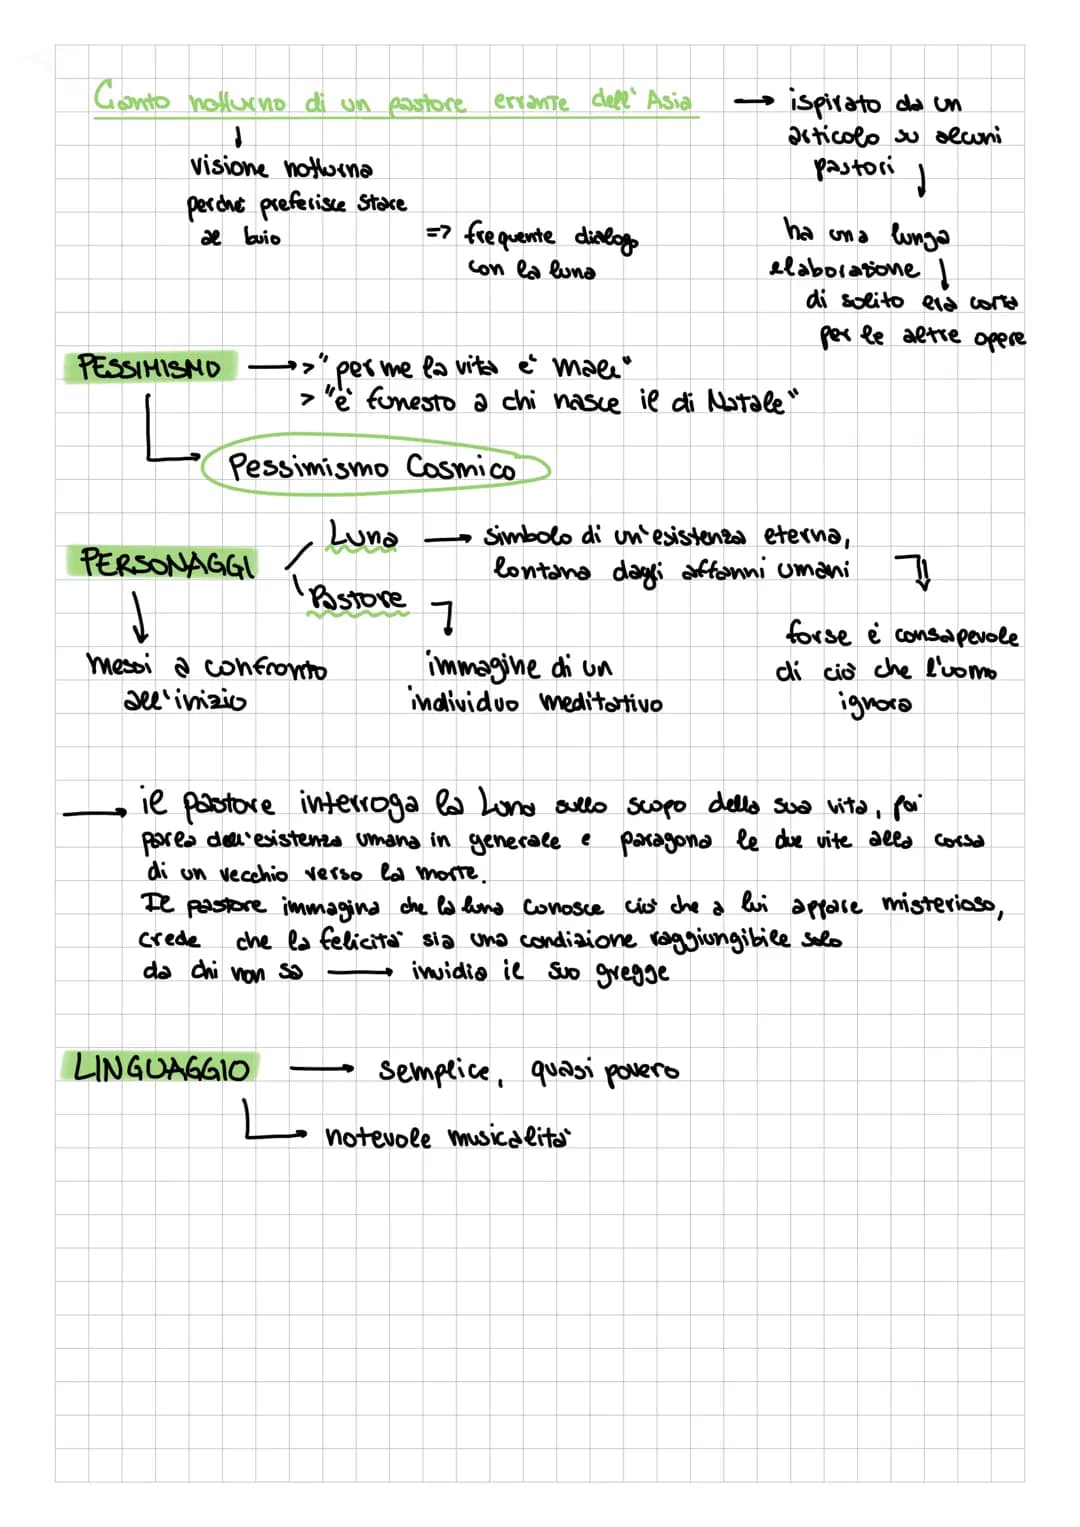 Canto notturno di un pastore errante dell'Asia → ispirato da un
articolo su alcuni
pastori
visione notturna
perché preferisce stare
al buio
=> frequente dialogo
con la luna
ha una lunga
elaborazione
di solito era corta
per le altre opere
PESSIMISMO → >"per me la vita è male"
> "è funesto a chi nasce il dì Natale"
Pessimismo Cosmico
PERSONAGGI
Luna → simbolo di un'esistenza eterna,
lontana dagli affanni umani
Pastore
forse è consapevole
di ciò che l'uomo
ignora
messi a confronto
all'inizio
immagine di un
individuo meditativo
→ il pastore interroga la Luna sullo scopo della sua vita, poi
parla dell'esistenza umana in generale e paragona le due vite alla corsa
di un vecchio verso la morte.
Il pastore immagina che la luna conosce ciò che a lui appare misterioso,
crede che la felicità sia una condizione raggiungibile solo
da chi non sa → invidia il suo gregge
LINGUAGGIO → semplice, quasi povero
notevole musicalità